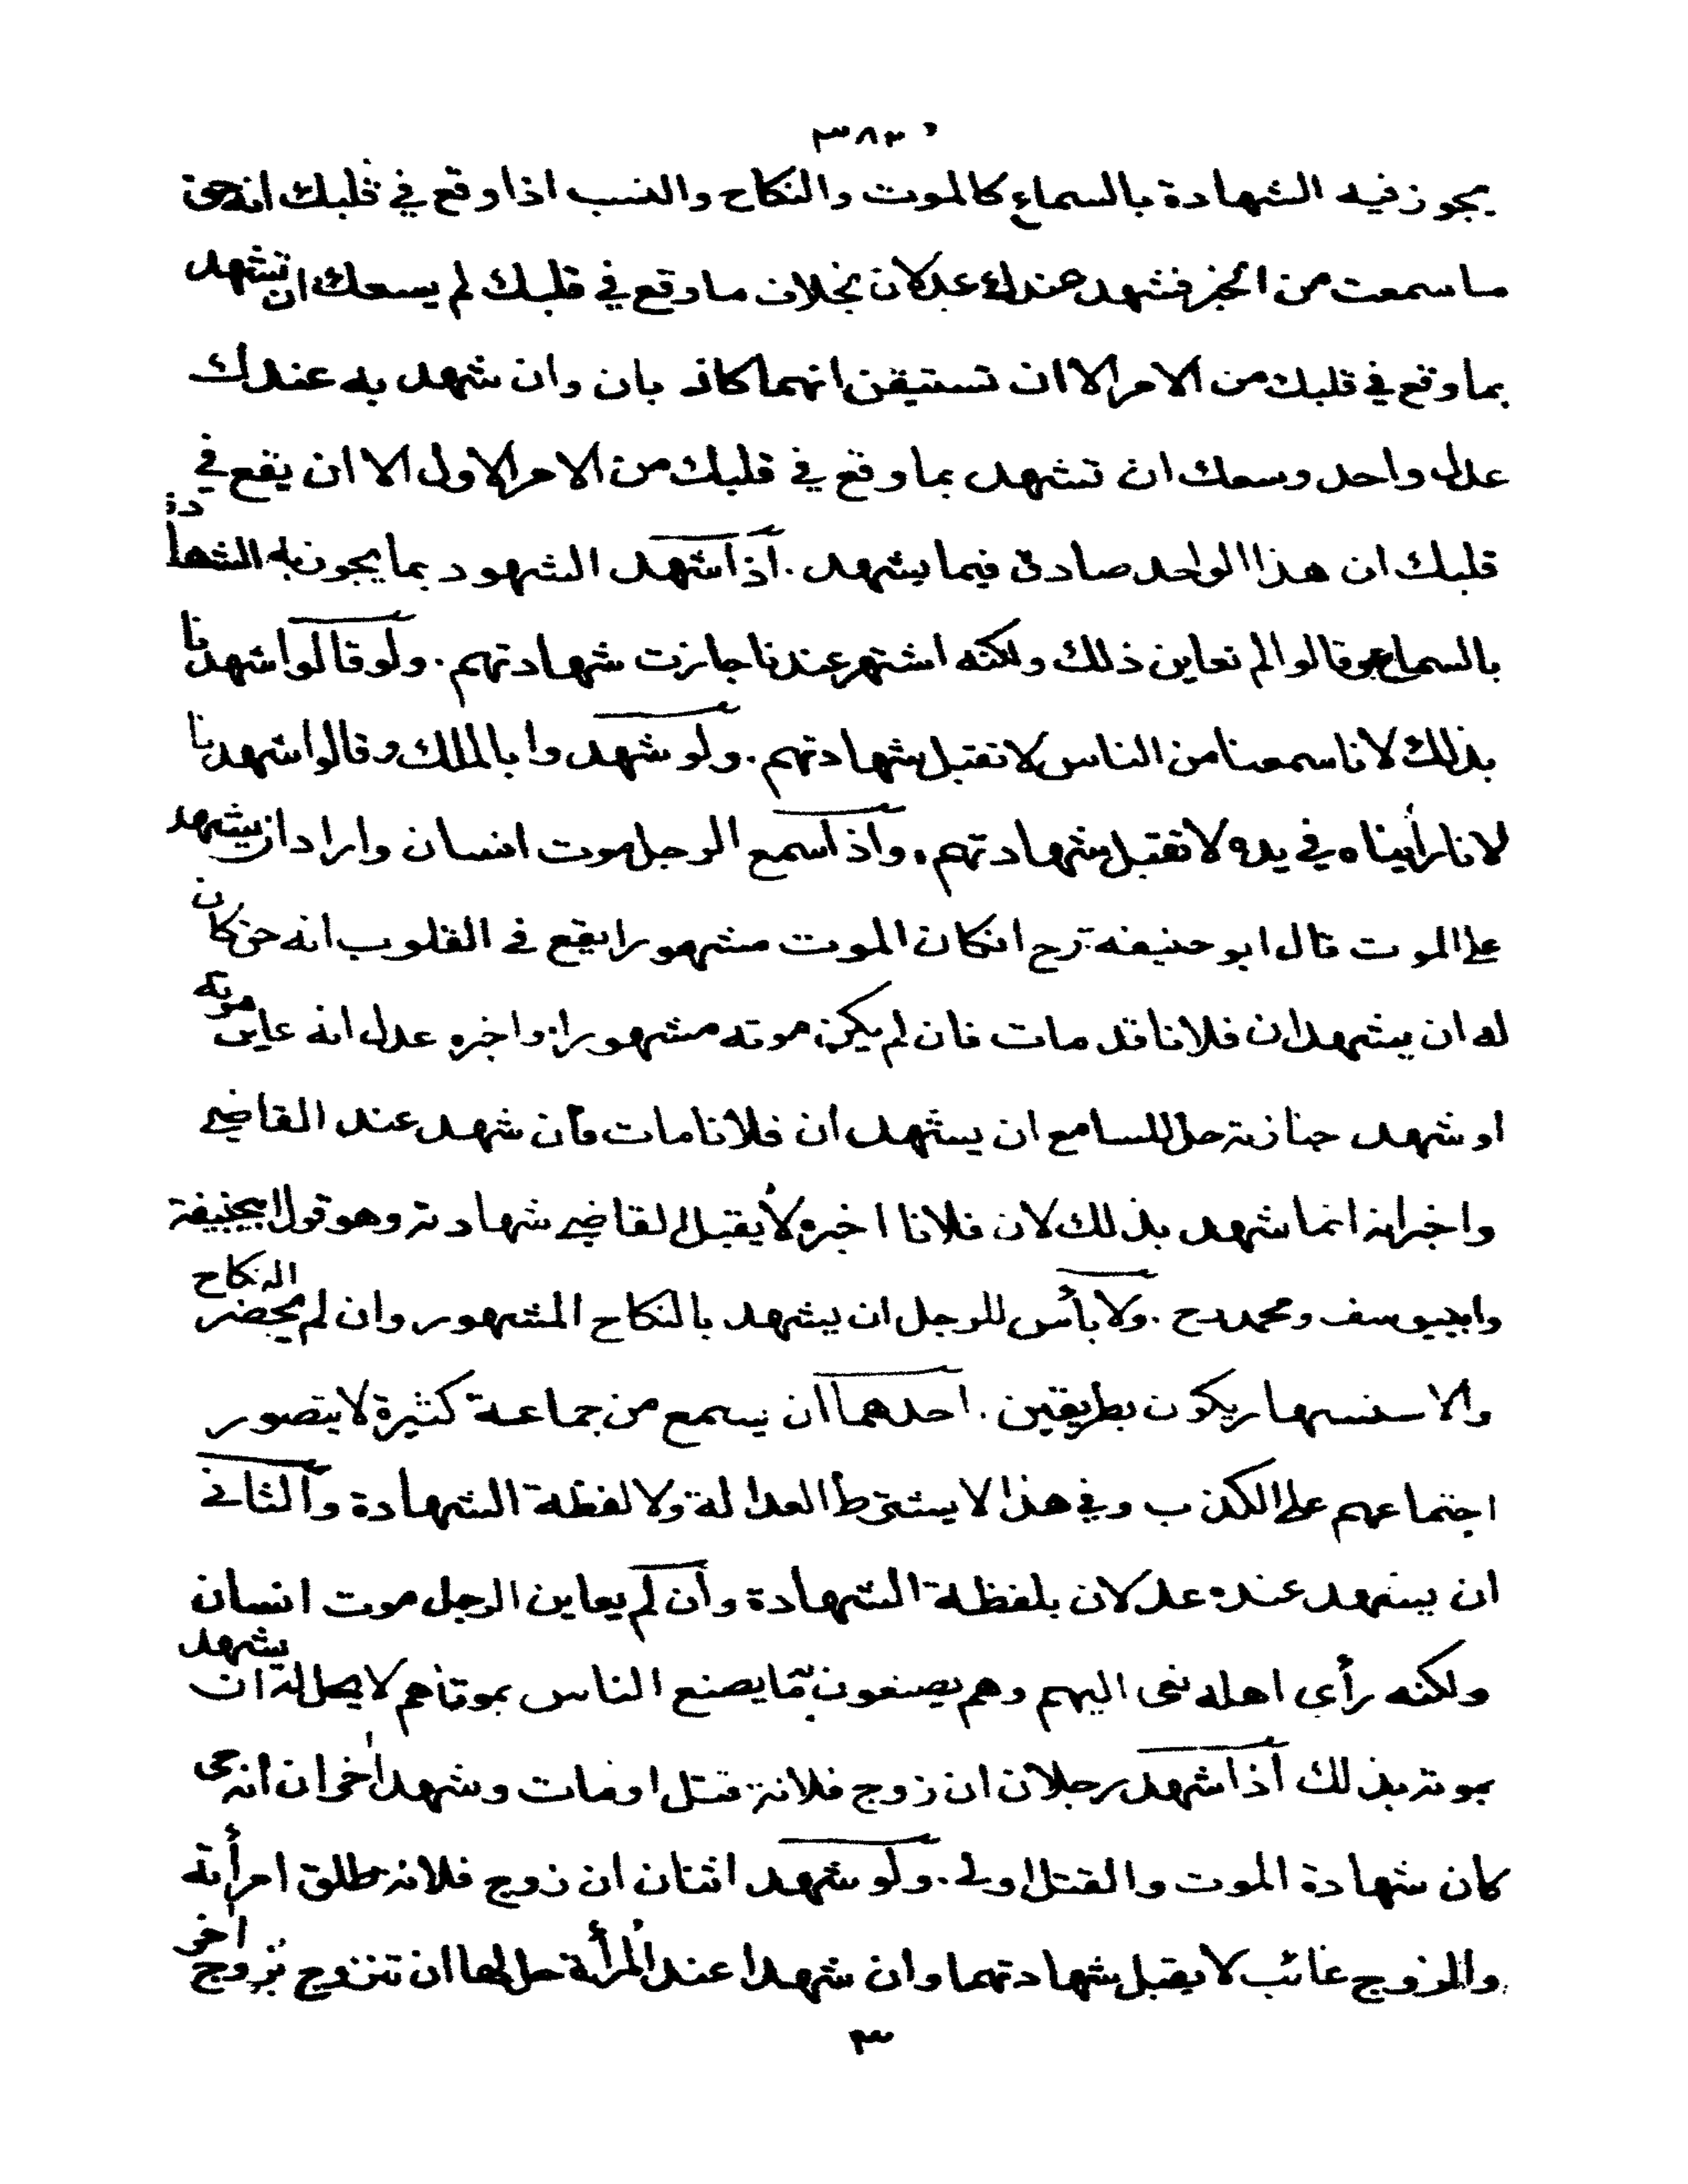 ٣٨٢
يجوز فيه الشهادة بالسماع كالموت والنكاح والنسب اذا وقع في قلبك انه حق
ما سمعت من الخبر فشهد عندك عدلان بخلاف ما وقع في قلبك لم يسعك ان تشهد
بما وقع في قلبك من الامر الا ان تستيقن انهما كاذبان وان شهد به عندك
عدل واحد وسعك ان تشهد بما وقع في قلبك من الامر الاول الا ان يقع في
قلبك ان هذا الواحد صادق فيما يشهد . اذا شهد الشهود بما يجوز به الشهادة
بالسماع وقالوا لم نعاين ذلك ولكنه اشتهر عندنا جازت شهادتهم . ولو قالوا شهدنا
بذلك لانا سمعنا من الناس لا تقبل شهادتهم . ولو شهدوا بالملك وقالوا شهدنا
لانا رأيناه في يده لا تقبل شهادتهم . واذا سمع الرجل موت انسان واراد ان يشهد
على الموت قال ابو حنيفه رح انكان الموت مشهورا يقع في القلوب انه حق كان
له ان يشهد ان فلانا قد مات فان لم يكن موته مشهورا واخبره عدل انه عاين موته
او شهد جنازته حل للسامع ان يشهد ان فلانا مات فأن شهد عند القاضي
واخبر انه انما شهد بذلك لان فلانا اخبره لا يقبل القاضي شهادته وهو قول ابيحنيفة
وابييوسف ومحمد رح . ولا بأس للرجل ان يشهد بالنكاح المشهور وان لم يحضر النكاح
والاستشهار يكون بطريقين . احدهما ان يسمع من جماعة كثيرة لا يتصور
اجتماعهم على الكذب وفي هذا لا يشترط العدالة ولا لفظة الشهادة والثاني
ان يشهد عنده عدلان بلفظة الشهادة وأن لم يعاين الرجل موت انسان
ولكنه رأى اهله نعى اليهم وهم يصنعون ما يصنع الناس بموتاهم لا يحل له ان يشهد
بموته بذلك اذا شهد رجلان ان زوج فلانة قتل او مات وشهد اخران انه حى
كان شهادة الموت والقتل اولى . ولو شهد اثنان ان زوج فلانة طلق امرأته
والزوج غائب لا يقبل شهادتهما وان شهدا عند المرأة حل لها ان تتزوج بزوج اخر
٣